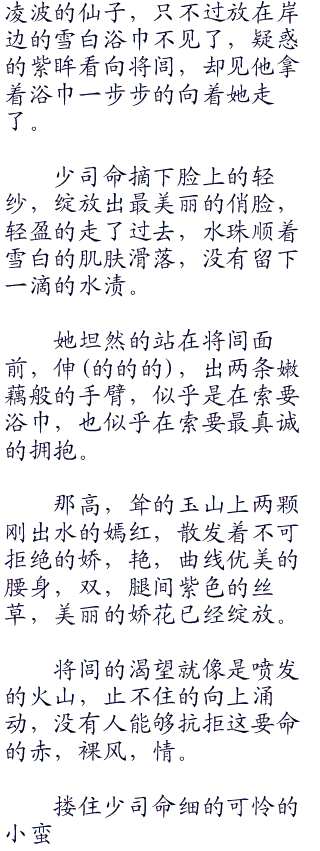 凌波的仙子，只不过放在岸
边的雪白浴巾不见了，疑惑
的紫眸看向将闾，却见他拿
着浴巾一步步的向着她走
了。
少司命摘下脸上的轻
纱，绽放出最美丽的俏脸，
轻盈的走了过去，水珠顺着
雪白的肌肤滑落，没有留下
一滴的水渍。
她坦然的站在将闾面
前，伸(的的的)，出两条嫩
藕般的手臂，似乎是在索要
浴巾，也似乎在索要最真诚
的拥抱。
那高，耸的玉山上两颗
刚出水的嫣红，散发着不可
拒绝的娇，艳，曲线优美的
腰身，双，腿间紫色的丝
草，美丽的娇花已经绽放。
将闾的渴望就像是喷发
的火山，止不住的向上涌
动，没有人能够抗拒这要命
的赤，裸风，情。
搂住少司命细的可怜的
小蛮